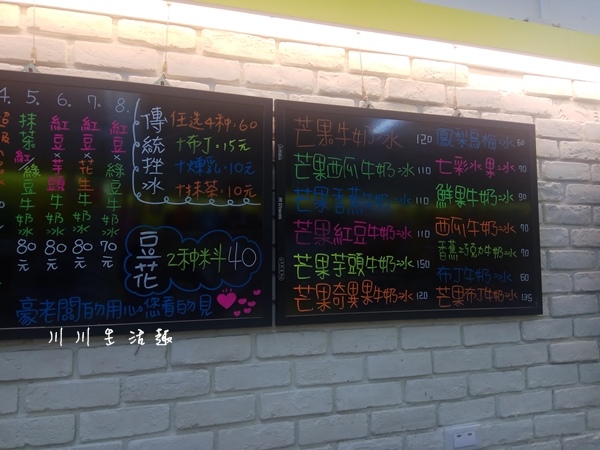 4. 5. 6. 7. 8.
抹茶紅綠豆牛奶冰 80元
紅豆×芋頭牛奶冰 80元
紅豆×花生牛奶冰 80元
紅豆×綠豆牛奶冰 70元
傳統挫冰
任選4種.60
+布丁.15元
+煉乳.10元
+抹茶.10元
豆花 2種料40
豪老闆的用心您看的見
芒果牛奶冰 120
芒果西瓜牛奶冰 110
芒果香蕉牛奶冰 110
芒果紅豆牛奶冰 110
芒果芋頭牛奶冰 150
芒果奇異果牛奶冰 120
鳳梨烏梅冰 60
七彩水果冰 90
鮮果牛奶冰 90
西瓜牛奶冰 90
香蕉巧克力牛奶冰 90
布丁牛奶冰 60
芒果布丁牛奶冰 135
川川生活趣